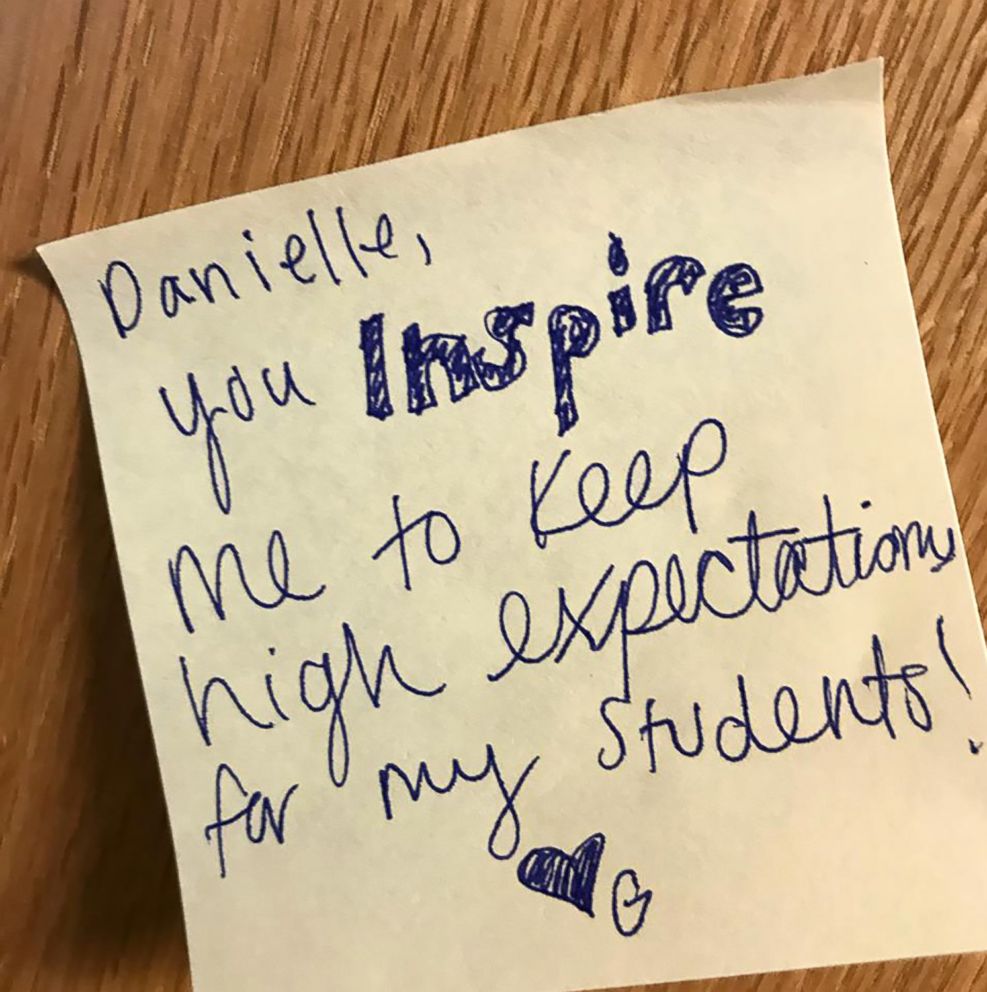 Danielle,
you Inspire
me to keep
high expectations
for my students!
♥G